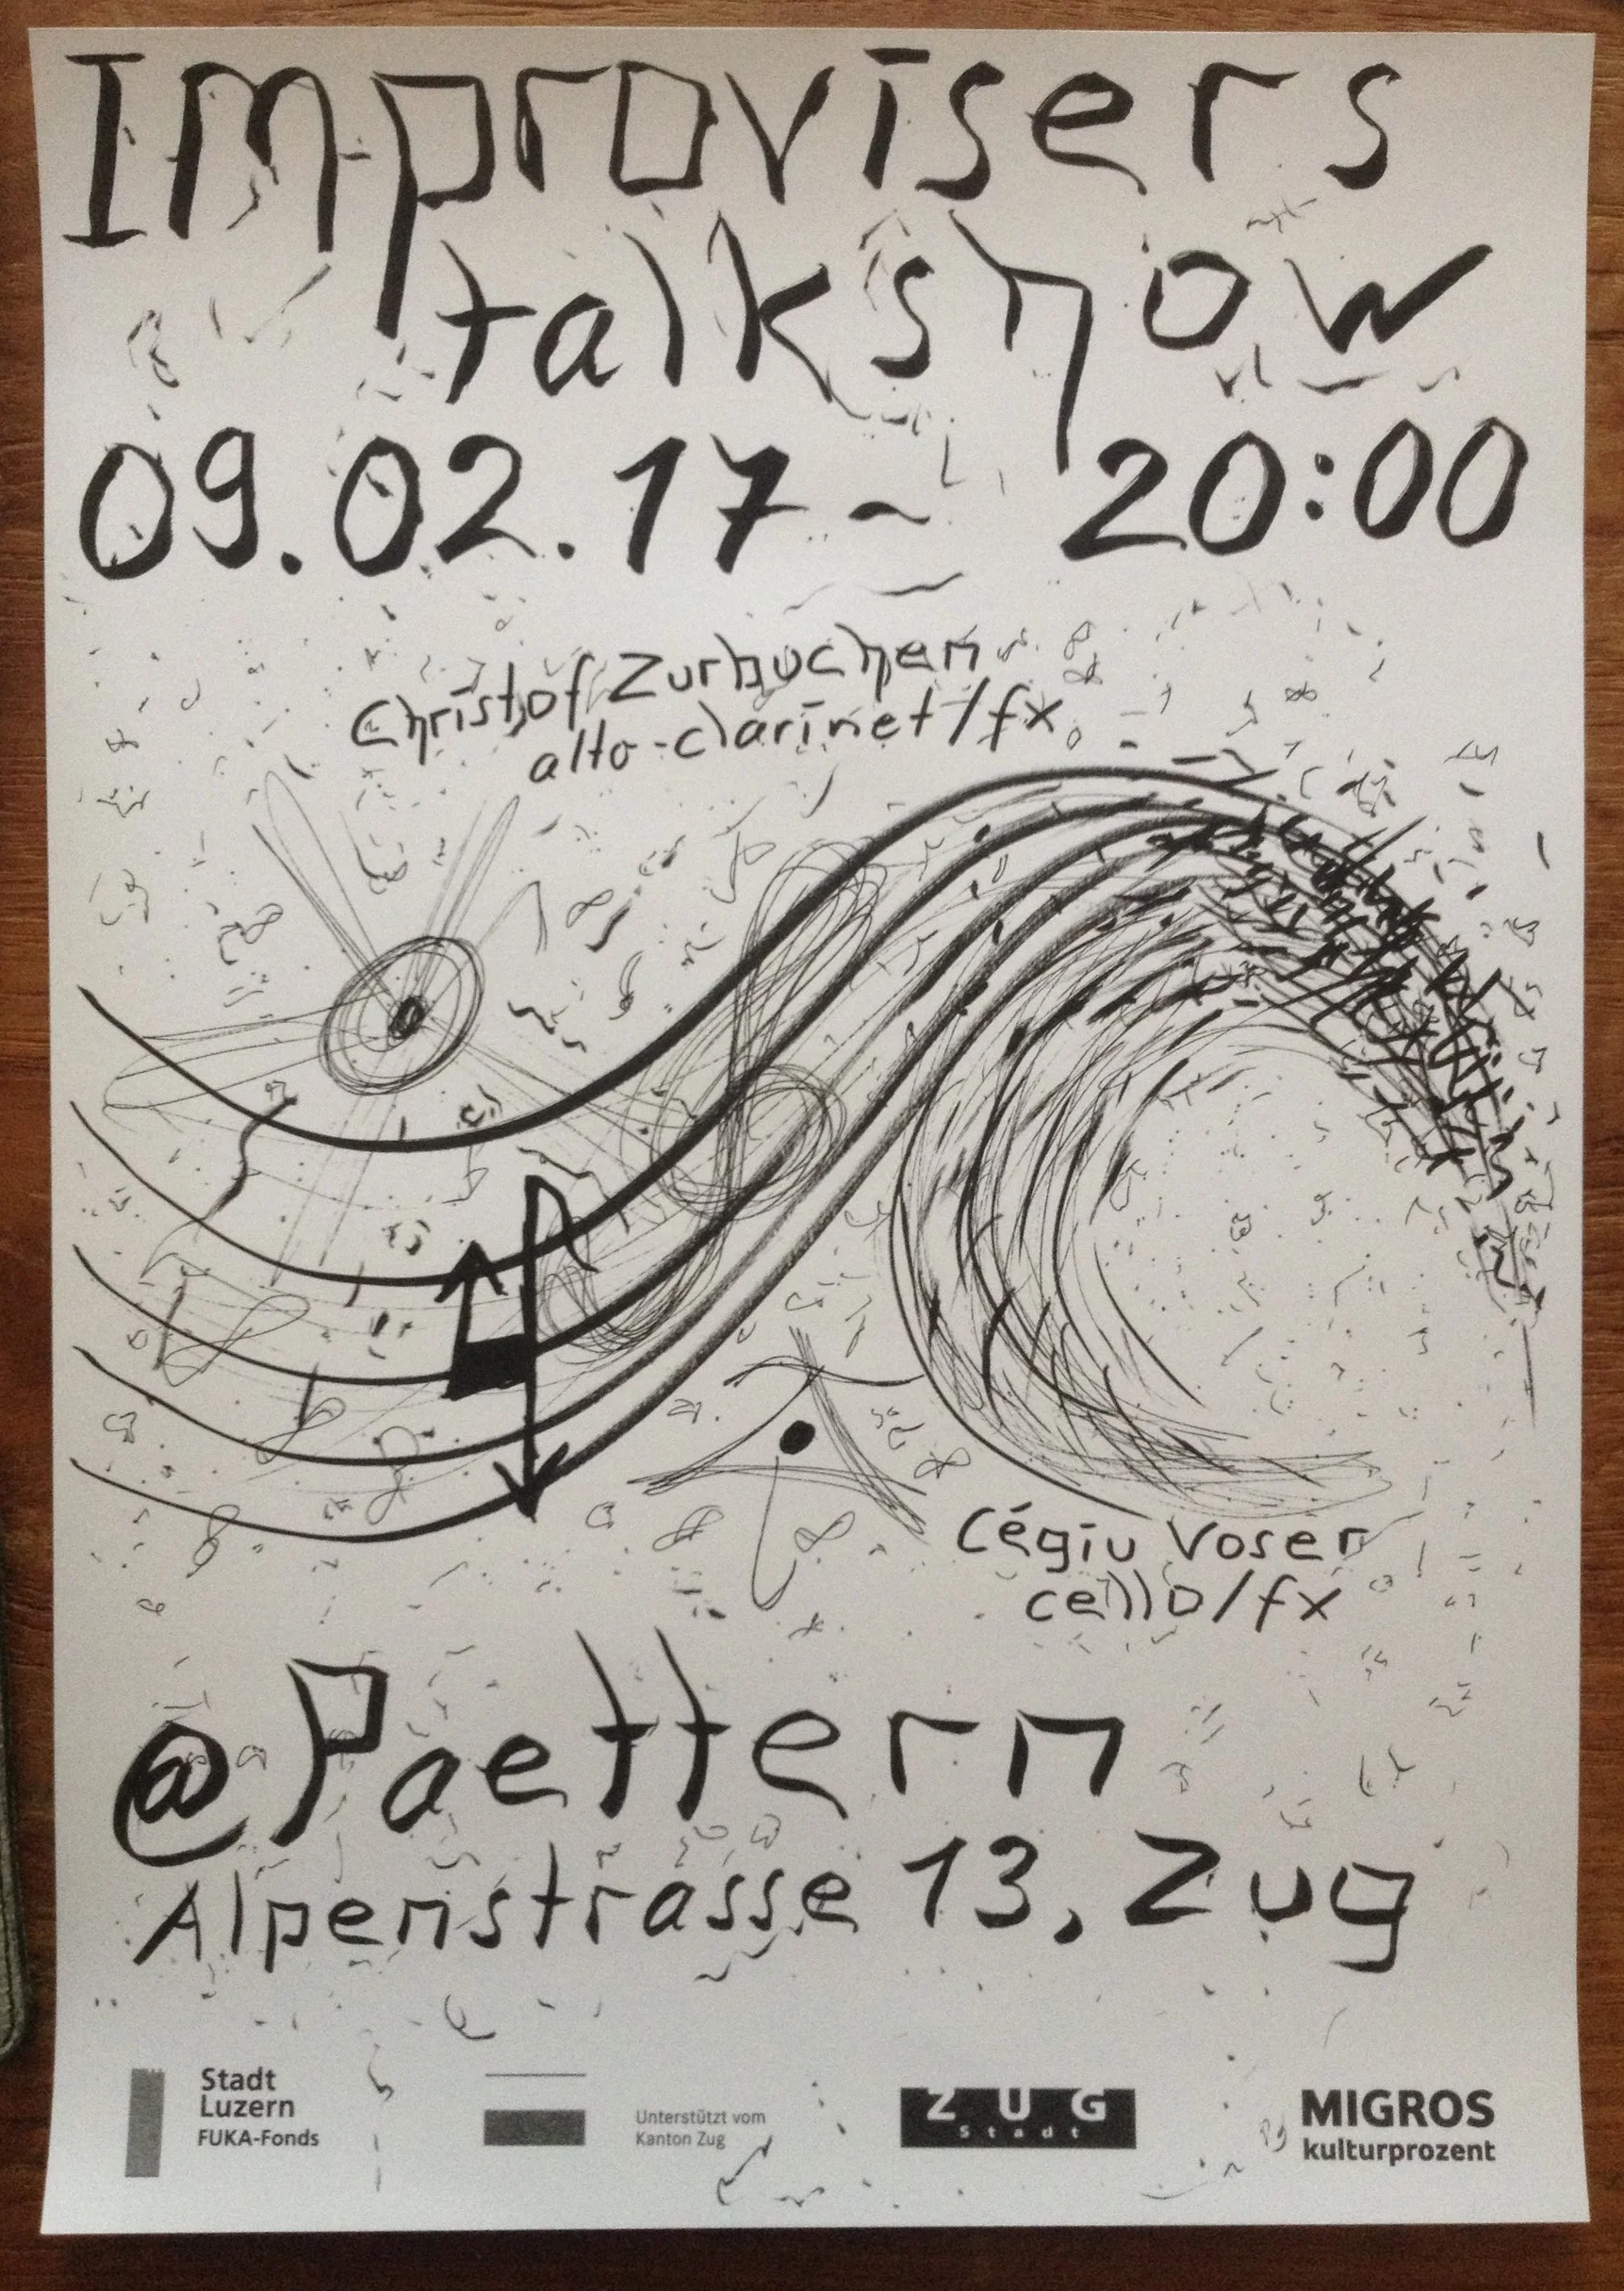 Improvisers
talkshow
09.02.17 ~ 20:00
Christof Zurbuchen
alto-clarinet/fx
Cégiu Voser
cello/fx
@Paettern
Alpenstrasse 13, Zug
Stadt
Luzern
FUKA-Fonds
Unterstützt vom
Kanton Zug
ZUG
Stadt
MIGROS
kulturprozent